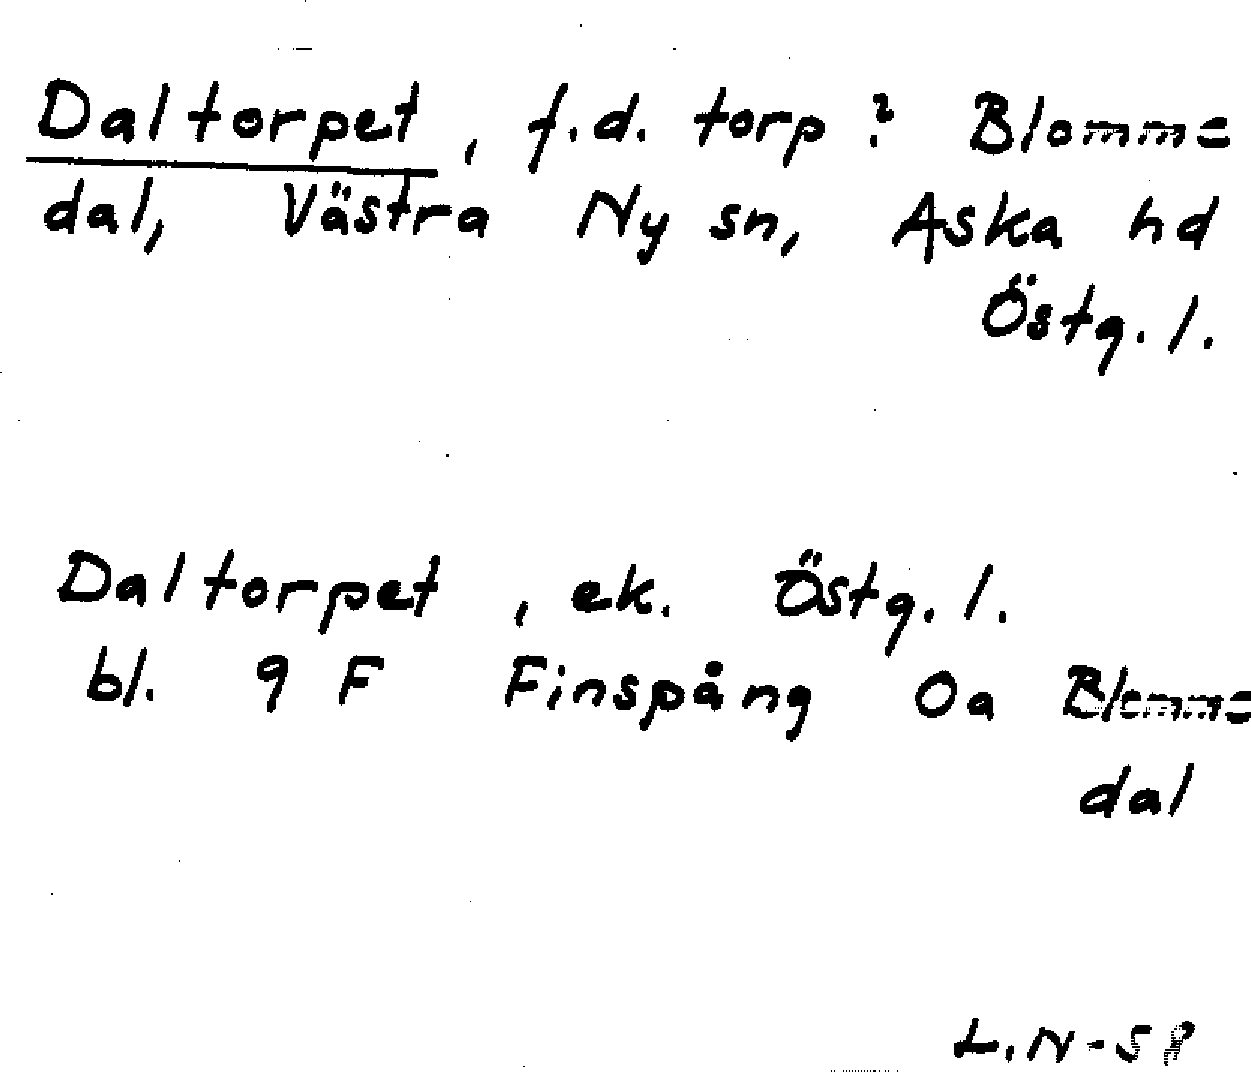 Daltorpet, f.d. torp ? Blomme
dal, Västra Ny sn, Aska hd
Östg. l.
Daltorpet, ek. Östg. l.
bl. 9 F Finspång Oa Blomme
dal
L.N-58